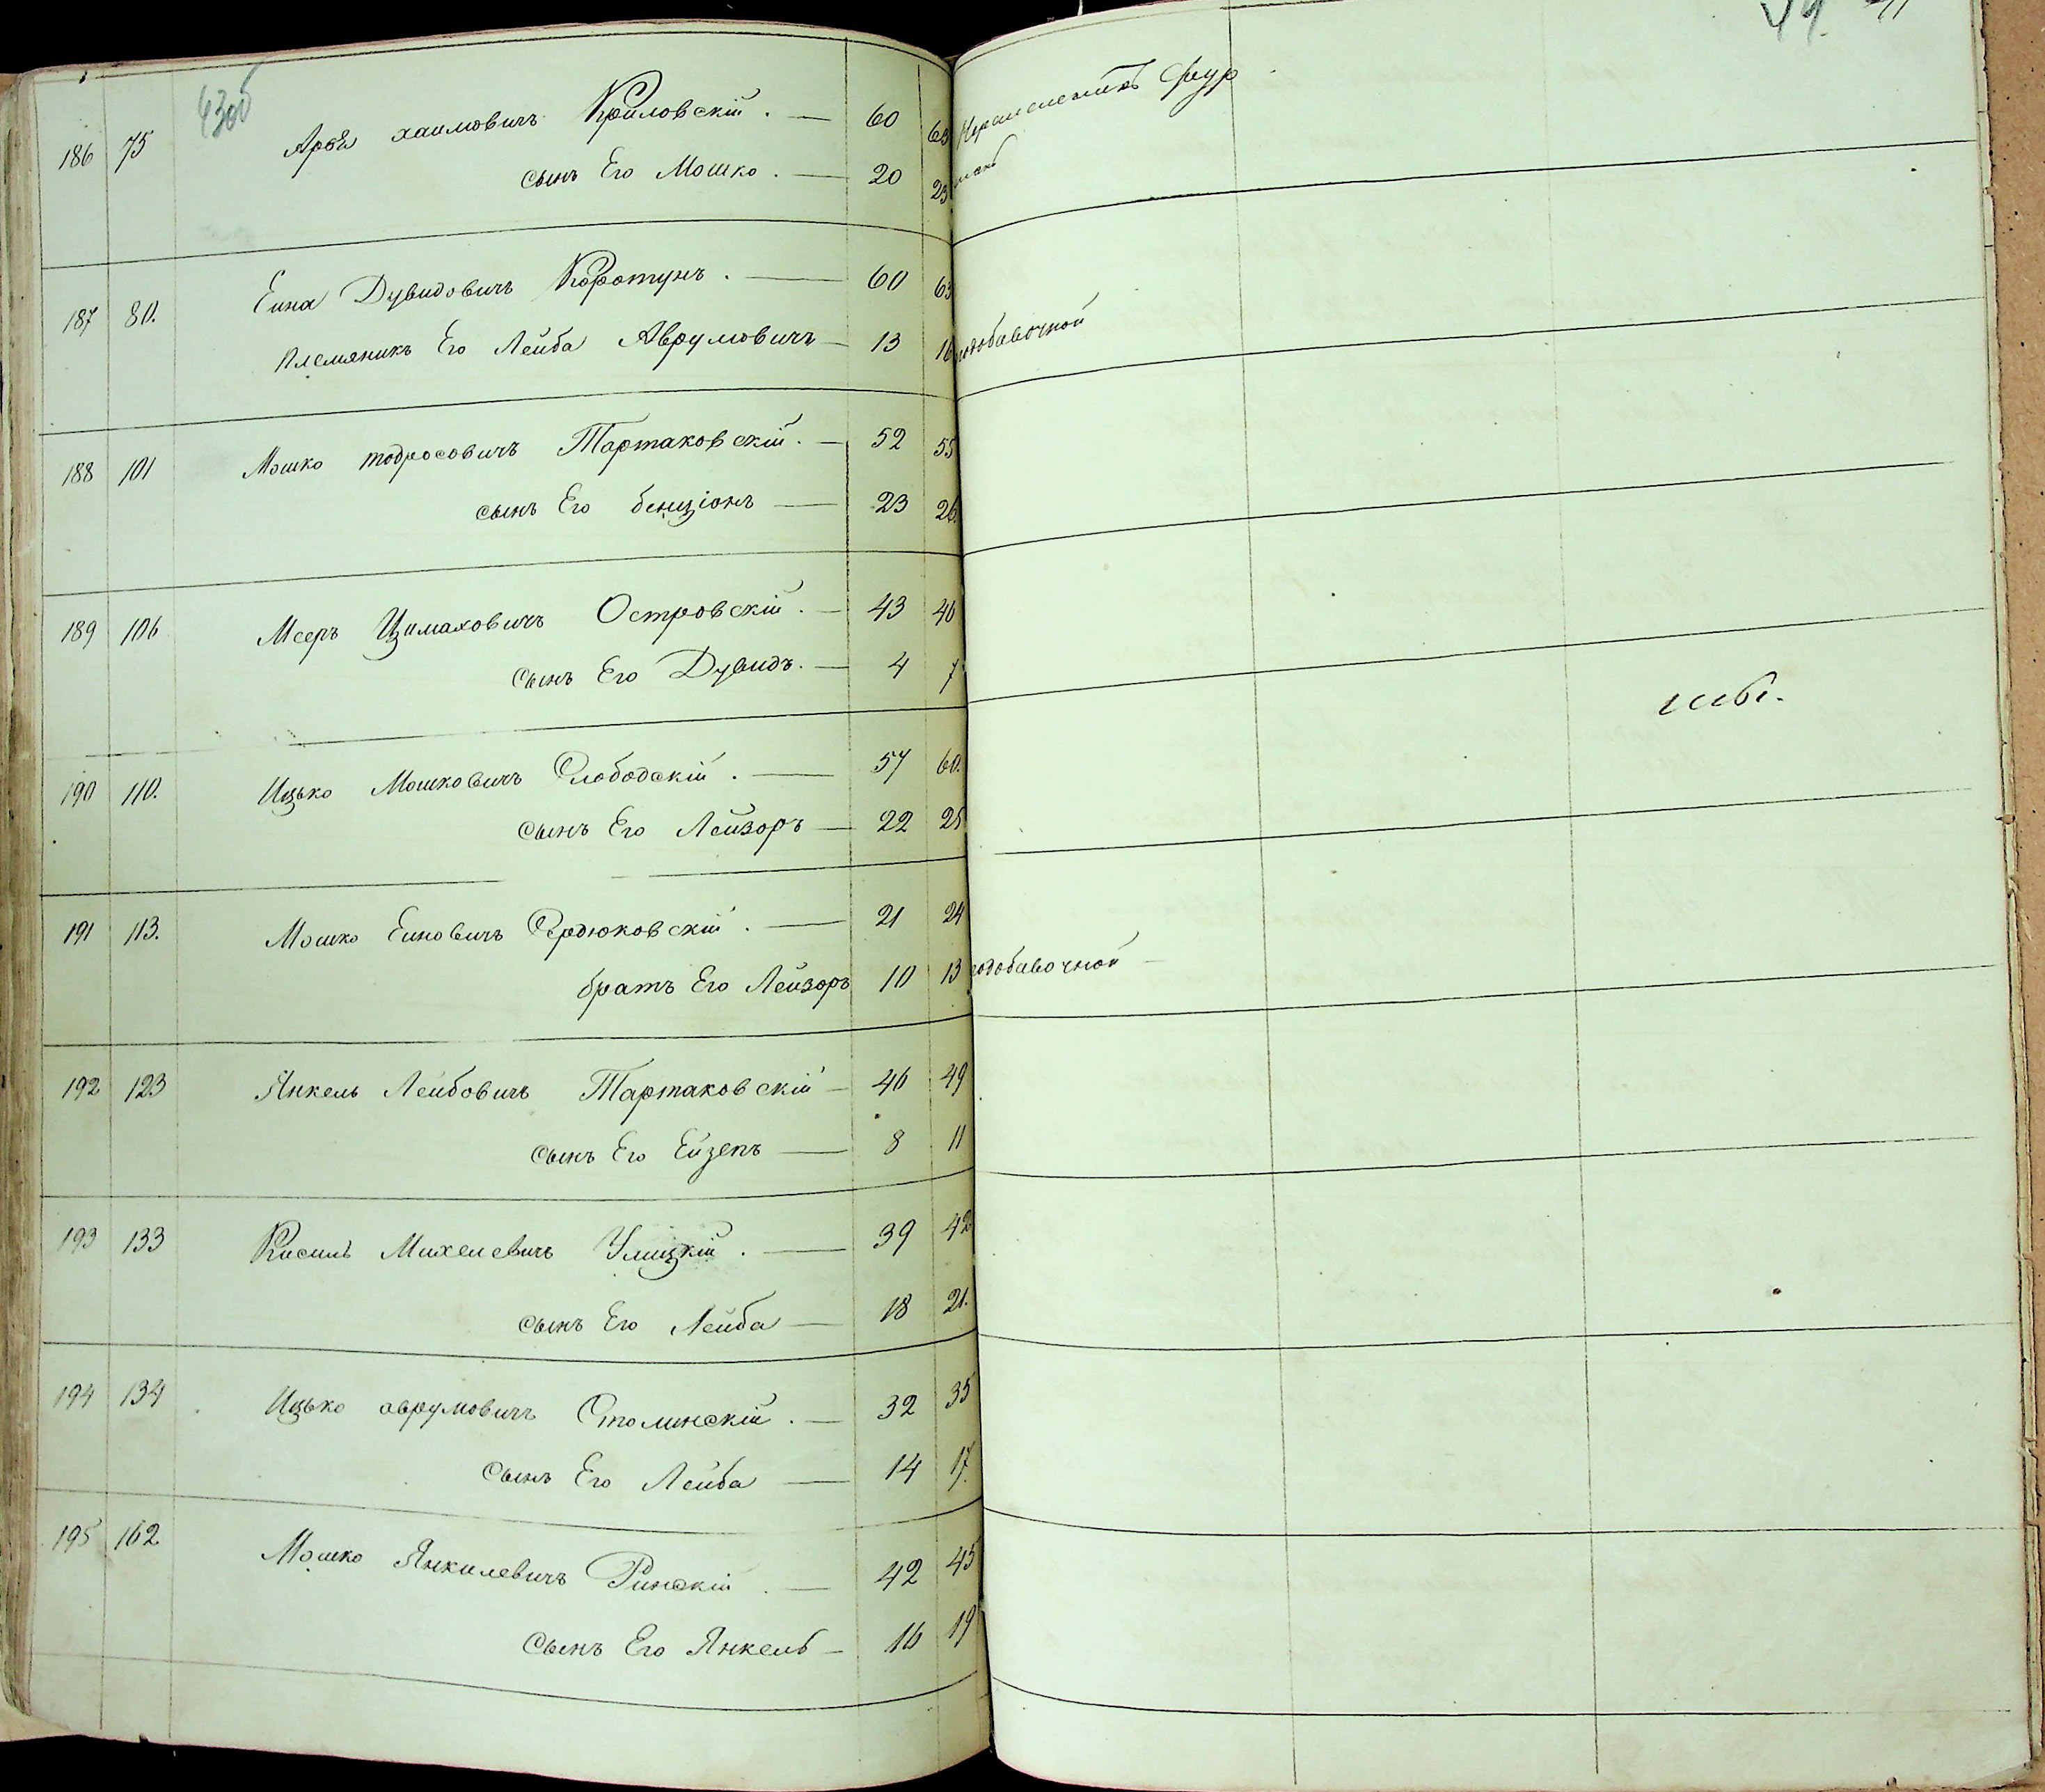 43об
186 75 Арья хаимовичъ Криловскій. — 60 63
сынъ Его Мошко. — 20 23
187 80. Еина Дувидовичъ Коротунъ. — 60 63
племяникъ Его Лейба Аврумовичъ — 13 16 подобавочной
188 101 Мошко тодросовичъ Тартаковскій. — 52 55
сынъ Его бенціонъ — 23 26.
189 106 Мееръ Цимаховичъ Островскій. — 43 46
сынъ Его Дувидъ. — 4 7
190 110. Ицько Мошковичъ Слободскій. — 57 60.
сынъ Его Лейзоръ — 22 25
191 113. Мошко Еиновичъ Сердюковскій. — 21 24
братъ Его Лейзоръ 10 13 подобавочной —
192 123 Янкель Лейбовичъ Тартаковскій — 46 49
сынъ Его Ейзепъ — 8 11
193 133 Кисиль Михелевичъ Улицкій. — 39 42
сынъ Его Лейба — 18 21.
194 134 Ицько аврумовичъ Столинскій. — 32 35
сынъ Его Лейба — 14 17.
195 162 Мошко Янкилевичъ Ринскій. — 42 45
сынъ Его Янкель — 16 19